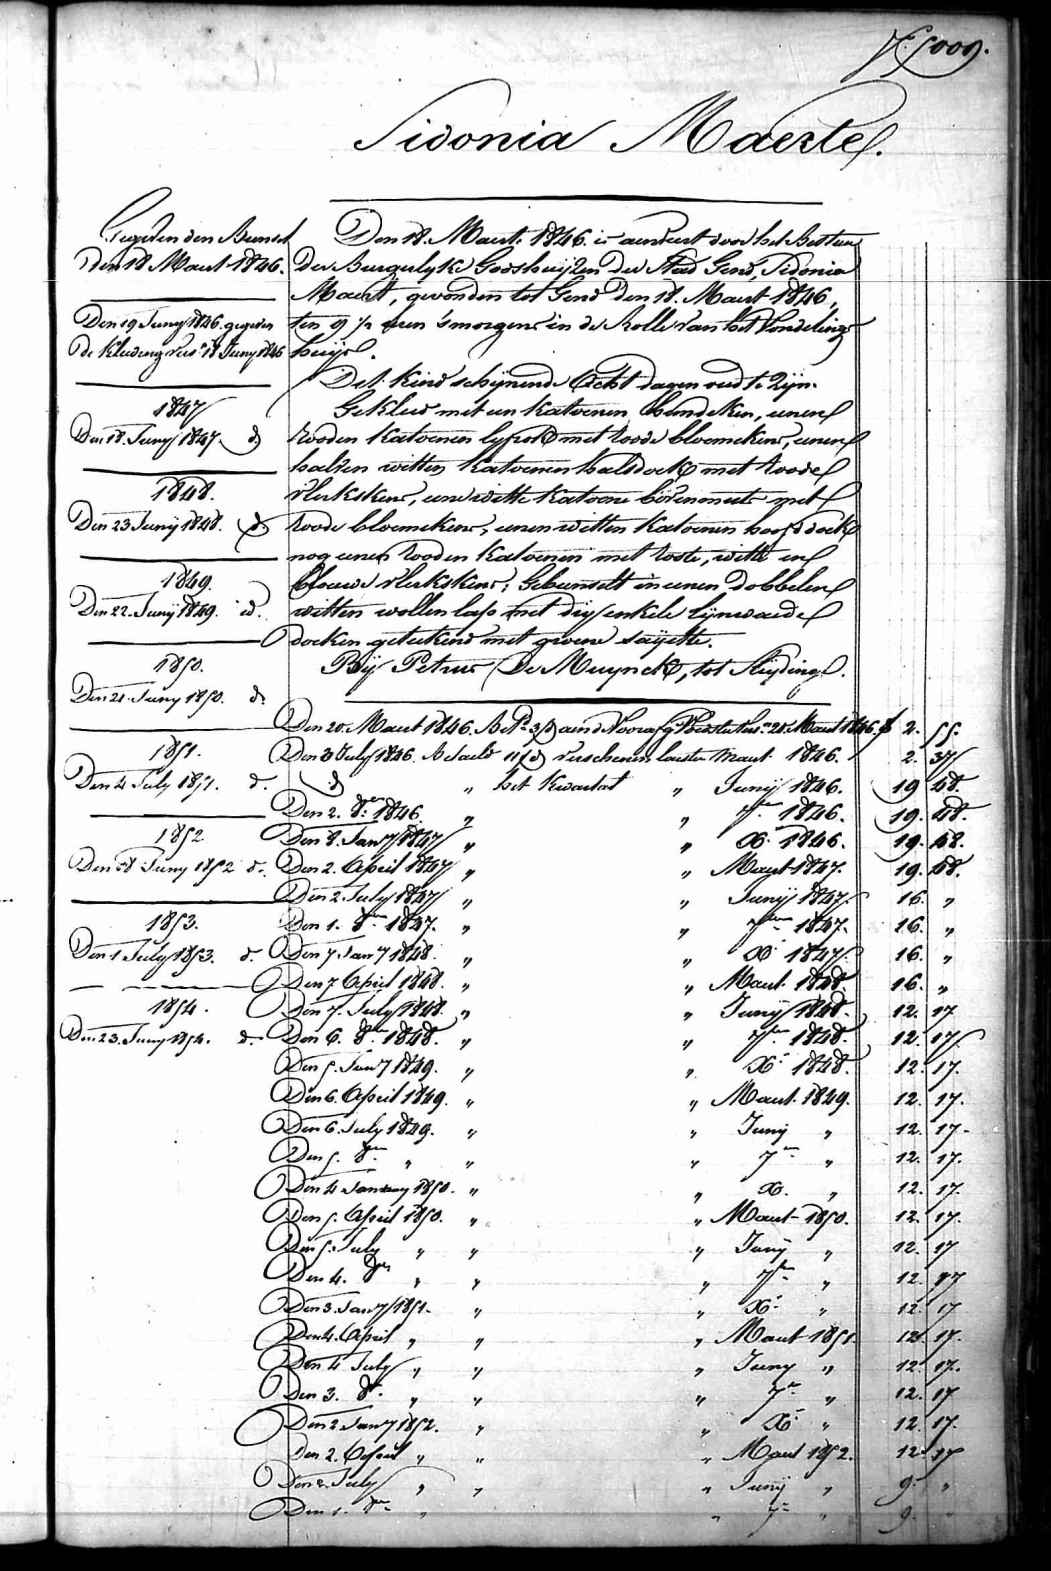 Sidonia Maerte.
Gegeven den Bunsel
den 18 Maart 1846.
Den 19 Juny 1846 gegeven
de kleeding vers. 18 Juny 1846
1847
Den 18. Juny 1847. d°
1848.
Den 23 Junij 1848. d°
1849.
Den 22. Junij 1849. id.
1850.
Den 21. Juny 1850. d°
1851.
Den 4 July 1851. d°.
1852
Den 18 Juny 1852 d°.
1853.
Den 1 July 1853. d°.
1854.
Den 23. Juny 1854. d°.
Den 18. Maart 1846. is aenveert door het Bestuer
der Burgerlyke Godshuijzen der Stad Gend, Sidonia
Maert, gevonden tot Gend den 18. Maart 1846,
ten 9 ½ uren 's morgens in de Rolle van het Vondelings
huijs.
Dit kind schijnende Acht dagen oud te zijn.
Gekleed met een katoenen hemdeken, eenen
rooden katoenen lyfrok met roode bloemekens, eenen
halven witten katoenen halsdoek met roode
vlekskens, eene witte katoene bovenmuts met
roode bloemekens, eenen witten katoenen hoofddoek
nog eenen rooden katoenen met roode, witte en
blouwe vlekskens; Gebunselt in eenen dobbelen
witten wollen lap met dry enkele lynwaede
doeken geteekend met groene sayette.
Bij Petrus De Muynck, tot Sleydinge.
Den 20. Maart 1846. B 21. Maart 1846. f 2. 55.
Den 3 July 1846. Betaeld verschenen laesten Maart 1846. 2. 37
d° " het kwartael " Junij 1846. 19 48.
Den 2. 8er 1846. " " 7er 1846. 19. 48.
Den 8. Jany 1847 " " X' 1846. 19. 48.
Den 2. April 1847 " " Maart 1847. 19. 48.
Den 2 July 1847 " " Junij 1847. 16. "
Den 1. 8er 1847. " " 7er 1847. 16. "
Den 7 Jany 1848. " " X' 1847. 16. "
Den 7 April 1848. " " Maart 1848. 16. "
Den 7. July 1848. " " Junij 1848. 12. 17
Den 6. 8er 1848. " " 7er 1848. 12. 17.
Den 5. Jany 1849. " " X' 1848. 12. 17.
Den 6. April 1849. " " Maart. 1849. 12. 17.
Den 6. July 1849. " " Junij " 12. 17.
Den 5. 8er " " " 7er " 12. 17.
Den 4 January 1850. " " X. " 12. 17.
Den 5. April 1850. " " Maart 1850. 12. 17.
Den 5. July " " " Junij " 12. 17
Den 4. 8er " " " 7er " 12. 17
Den 3. Jany 1851. " " X' " 12 17
Den 4. April " " " Maart 1851 12. 17.
Den 4 July " " " Juny " 12. 17.
Den 3. 8er " " " 7er " 12. 17
Den 2 Jany 1852. " " X' " 12. 17.
Den 2. April " " " Maart 1852. 12. 17
Den 2. July " " " Junij " 9. "
Den 1. 8er " " 7er " 9. "